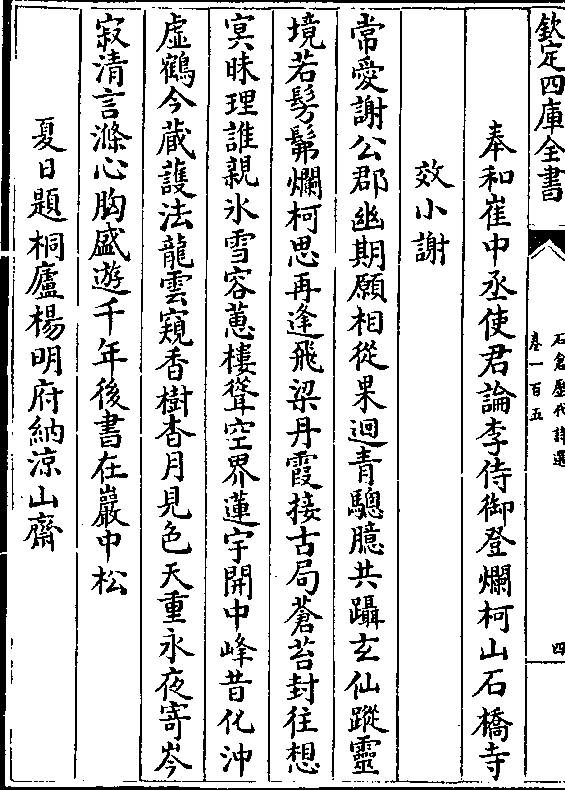 欽定四庫全書
石倉歷代詩選
卷一百五
四
奉和崔中丞使君論李侍御登爛柯山石橋寺
效小謝
常愛謝公郡幽期願相從果迴青驄臆共躡玄仙蹤靈
境若髣髴爛柯思再逢飛梁丹霞接古局蒼苔封往想
冥昧理誰親氷雪容蔥樓聳空界蓮宇開中峰昔化沖
虛鶴今蔵護法龍雲窺香樹杳月見色天重永夜寄岑
寂清言滌心胸盛遊千年後書在巖中松
夏日題桐廬楊明府納凉山齋